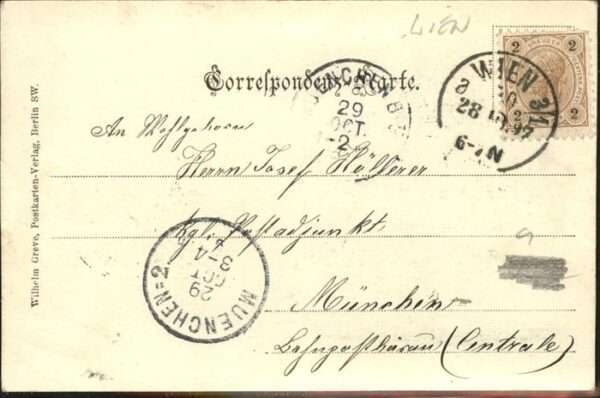 LIEN
2 2
2 2
WIEN
28 10.97
6-7N
Correspondenz-Karte.
29
OCT.
An Wohlgeborn
Herrn Josef Höllerer
Kgl. Postadjunkt
München
Bahnpostbüreau (Centrale)
MUENCHEN 2
29
OCT
3-4
Wilhelm Greve, Postkarten-Verlag, Berlin SW.